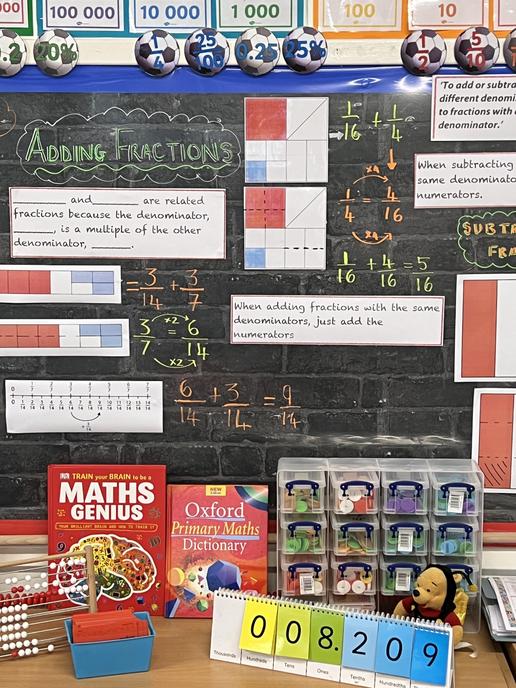 100 000
10 000
1 000
100
10
0.2
20%
1/4
25/100
0.25
25%
1/2
5/10
'To add or subtra
different denomi
to fractions with
denominator.'
ADDING FRACTIONS
1/16 + 1/4
x4
1/4 = 4/16
x4
1/16 + 4/16 = 5/16
When subtracting
same denominato
numerators.
SUBTR
FRA
______ and ______ are related
fractions because the denominator,
______, is a multiple of the other
denominator, ______.
= 3/14 + 3/7
When adding fractions with the same
denominators, just add the
numerators
x2
3/7 = 6/14
x2
6/14 + 3/14 = 9/14
DK TRAIN your BRAIN to be a
MATHS
GENIUS
YOUR BRILLIANT BRAIN AND HOW TO TRAIN IT
NEW
Oxford
Primary Maths
Dictionary
0 0 8. 2 0 9
Thousands Hundreds Tens Ones Tenths Hundredths